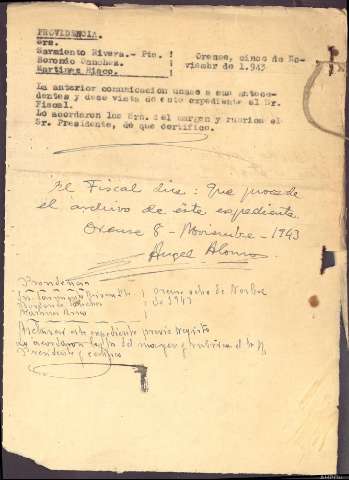 PROVIDENCIA.
Sres.
Sarmiento Rivera.- Pte.
Boronio Sanchez.
Martinez Risco.
Orense, cinco de No-
viembr de 1.943
La anterior comunicación unase a sus antece-
dentes y dese vista de este expediente al Sr.
Fiscal.
Lo acordaron los Srs. del margen y rubrica el
Sr. Presidente, de que certifico.
El Fiscal dice: Que procede
el archivo de éste expediente.
Orense 8 - Noviembre - 1943
Angel Alonso
Providencia
Orense ocho de Novbre
de 1943
Archivese este expediente previo registro
Lo acordaron los Srs del margen y rubrica el Sr
Presidente y certifico